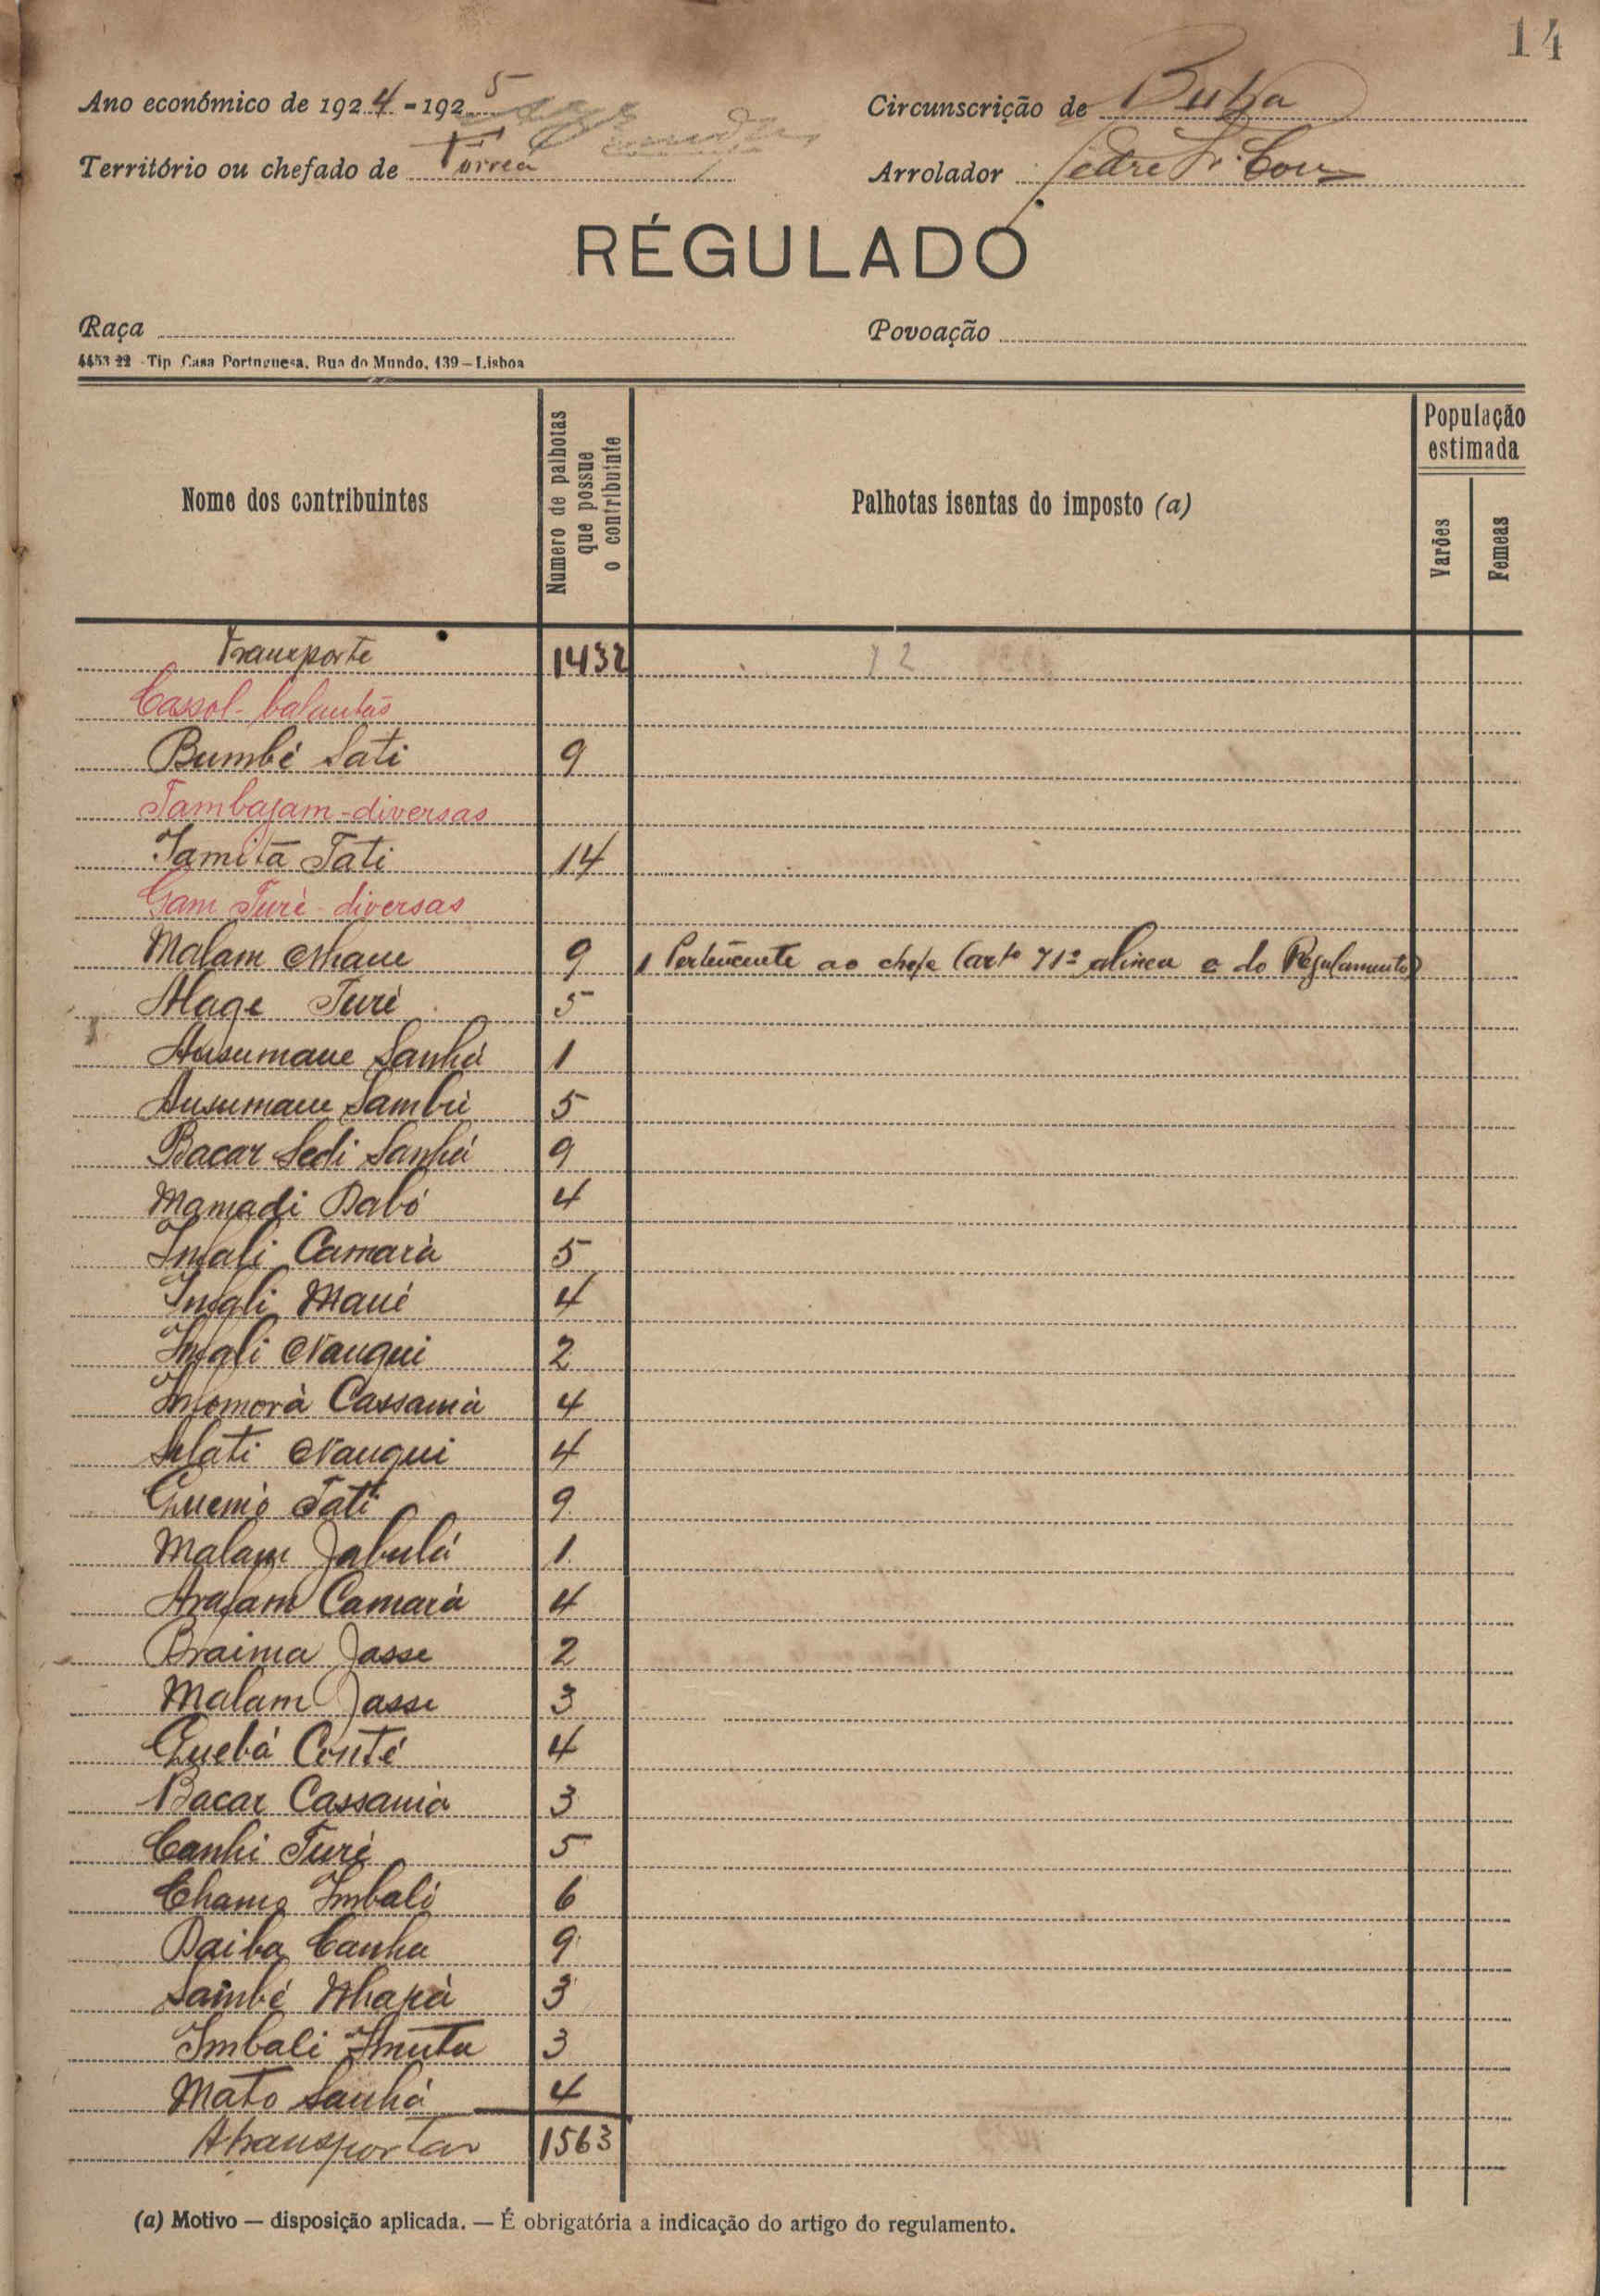 14
Ano económico de 1924-1925
Circunscrição de Buba
Território ou chefado de Forreá
Arrolador Pedro
RÉGULADO
Raça
Povoação
4453 22 - Tip. Casa Portuguesa, Rua do Mundo, 139 – Lisboa
Nome dos contribuintes
Numero de palhotas que possue o contribuinte
Palhotas isentas do imposto (a)
População estimada
Varões
Femeas
Transporte 1432 12
Cassol - balantas
Bumbé Sati 9
Tambajam - diversas
Tamitá Tati 14
Gam Turé - diversas
Malam Mané 9 1 Pertencente ao chefe (artº 71º alinea e do Regulamento)
Alage Turé 5
Ansumane Sanhá 1
Ansumane Sambú 5
Bacar Sedi Sanhá 9
Mamadi Dabó 4
Infali Camará 5
Infali Mané 4
Infali Nanqui 2
Infomorá Cassamá 4
Sulati Nanqui 4
Quemó Tati 9
Malam Jabulá 1
Arafam Camará 4
Braima Jasse 2
Malam Jasse 3
Quebá Conté 4
Bacar Cassamá 3
Canhi Turé 5
Chamo Imbali 6
Daiba Canha 9
Sambé 3
Imbali 3
Mato Sanhá 4
A transportar 1563
(a) Motivo — disposição aplicada. — É obrigatória a indicação do artigo do regulamento.